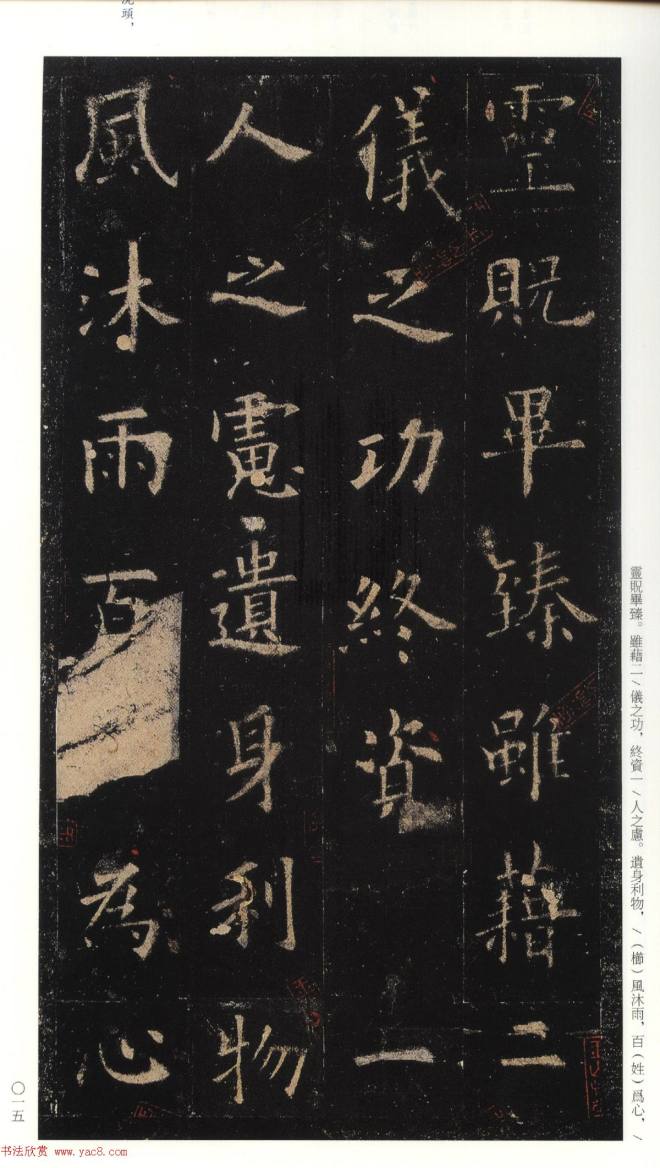 靈貺畢臻雖藉二
儀之功終資一
人之慮遺身利物
風沐雨百為心
靈貺畢臻。雖藉二\儀之功，終資一\人之慮。遺身利物，\（櫛）風沐雨，百（姓）爲心，\
〇一五
书法欣赏 www.yac8.com